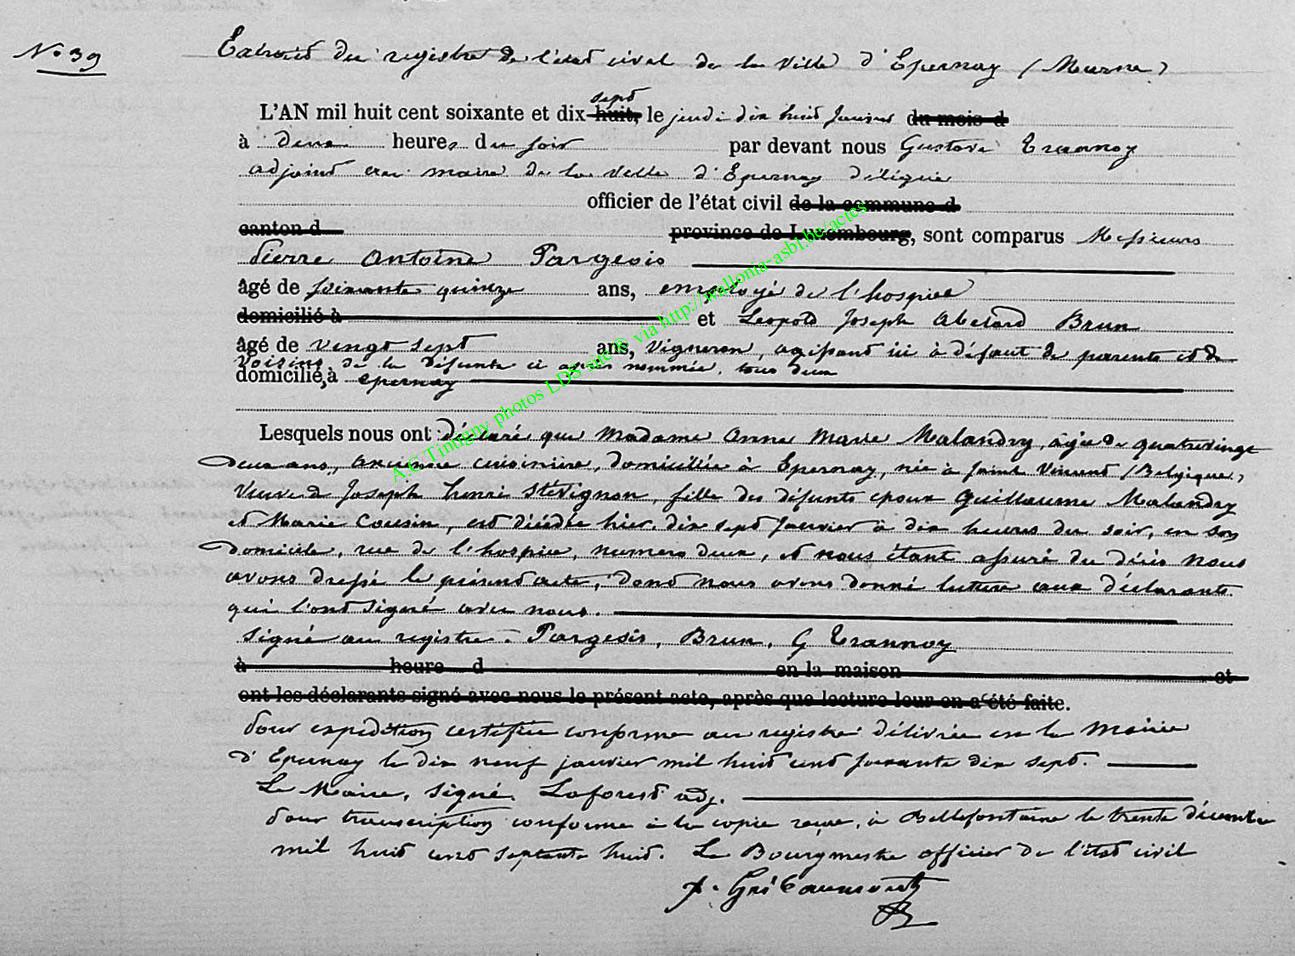 No 39
Extrait du registre de l'état civil de la ville d'Epernay (Marne)
L'AN mil huit cent soixante et dix-huit, sept le jeudi dix huit Janvier du mois d
à deux heures du soir par devant nous Gustave Trannoy
adjoint au maire de la ville d'Epernay délégué
officier de l'état civil de la commune d
canton d province de Luxembourg, sont comparus Messieurs
Pierre Antoine Pargeois
âgé de soixante quinze ans, employé de l'hospice
domicilié à et Léopold Joseph Abelard Brun
âgé de vingt sept ans, vigneron, agissant ici à défaut de parents et de
voisins de la défunte ci après nommée, tous deux
domicilié, à epernay
Lesquels nous ont déclaré que Madame Anne Marie Malandry, âgée de quatrevingt
deux ans, ancienne cuisinière, domiciliée à Epernay, née à Saint Vincent (Belgique)
veuve de Joseph henri Stévignon, fille des défunts époux Guillaume Malandry
et Marie Cousin, est décédée hier dix sept Janvier à dix heures du soir, en son
domicile, rue de l'hospice, numero deux, et nous étant assuré du décès nous
avons dressé le présent acte, dont nous avons donné lecture aux déclarants
qui l'ont signé avec nous.
Signé au registre : Pargeois, Brun, G Trannoy
à heure d en la maison et
ont les déclarants signé avec nous le présent acte, après que lecture leur en a été faite.
Pour expédition certifiée conforme au registre délivrée en la Mairie
d'Epernay le dix neuf janvier mil huit cent soixante dix sept.
Le Maire, signé, Laforest adj.
Pour transcription conforme à la copie reçue, à Bellefontaine le trente décembre
mil huit cent septante huit. Le Bourgmestre officier de l'état civil
A.G Tintigny photos LDS site © via http://mallonia-asbl.be/actes